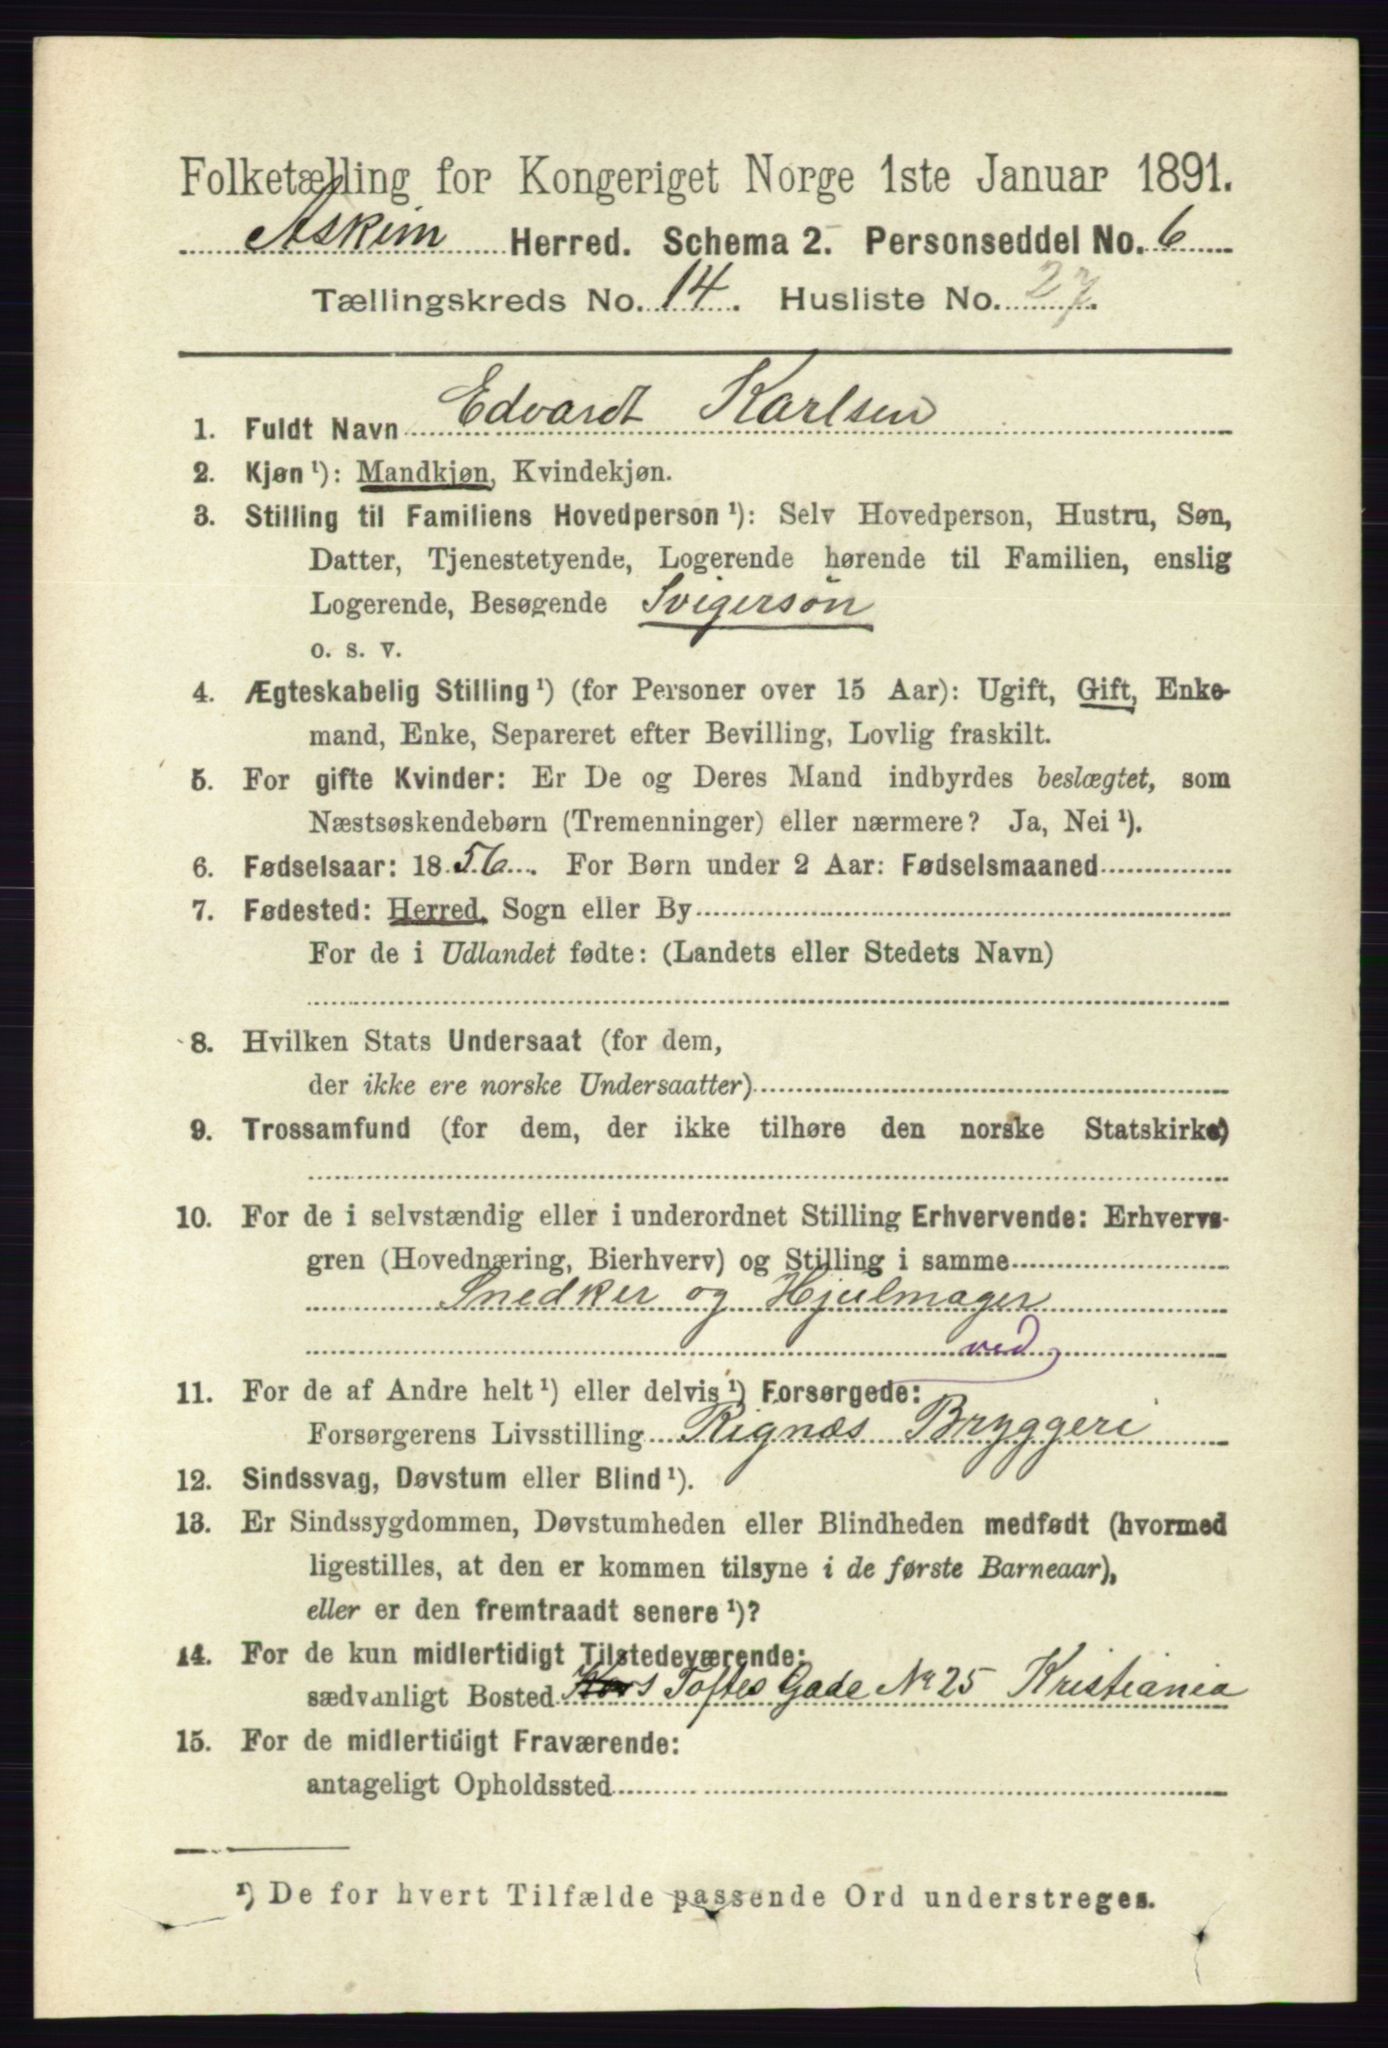 Folketælling for Kongeriget Norge 1ste Januar 1891.
Askim Herred. Schema 2. Personseddel No. 6
Tællingskreds No. 14. Husliste No. 27.
1. Fuldt Navn Edvardt Karlsen
2. Kjøn¹): Mandkjøn, Kvindekjøn.
3. Stilling til Familiens Hovedperson¹): Selv Hovedperson, Hustru, Søn,
Datter, Tjenestetyende, Logerende hørende til Familien, enslig
Logerende, Besøgende Svigersön
o. s. v.
4. Ægteskabelig Stilling¹) (for Personer over 15 Aar): Ugift, Gift, Enke-
mand, Enke, Separeret efter Bevilling, Lovlig fraskilt.
5. For gifte Kvinder: Er De og Deres Mand indbyrdes beslægtet, som
Næstsøskendebørn (Tremenninger) eller nærmere? Ja, Nei¹).
6. Fødselsaar: 1856. For Børn under 2 Aar: Fødselsmaaned
7. Fødested: Herred, Sogn eller By
For de i Udlandet fødte: (Landets eller Stedets Navn)
8. Hvilken Stats Undersaat (for dem,
der ikke ere norske Undersaatter)
9. Trossamfund (for dem, der ikke tilhøre den norske Statskirke)
10. For de i selvstændig eller i underordnet Stilling Erhvervende: Erhvervs-
gren (Hovednæring, Bierhverv) og Stilling i samme
Snedker og Hjulmager
ved
11. For de af Andre helt¹) eller delvis¹) Forsørgede:
Forsørgerens Livsstilling Rignæs Bryggeri
12. Sindssvag, Døvstum eller Blind¹).
13. Er Sindssygdommen, Døvstumheden eller Blindheden medfødt (hvormed
ligestilles, at den er kommen tilsyne i de første Barneaar),
eller er den fremtraadt senere¹)?
14. For de kun midlertidigt Tilstedeværende:
sædvanligt Bosted Toftes Gade No 25 Kristiania
15. For de midlertidigt Fraværende:
antageligt Opholdssted
¹) De for hvert Tilfælde passende Ord understreges.